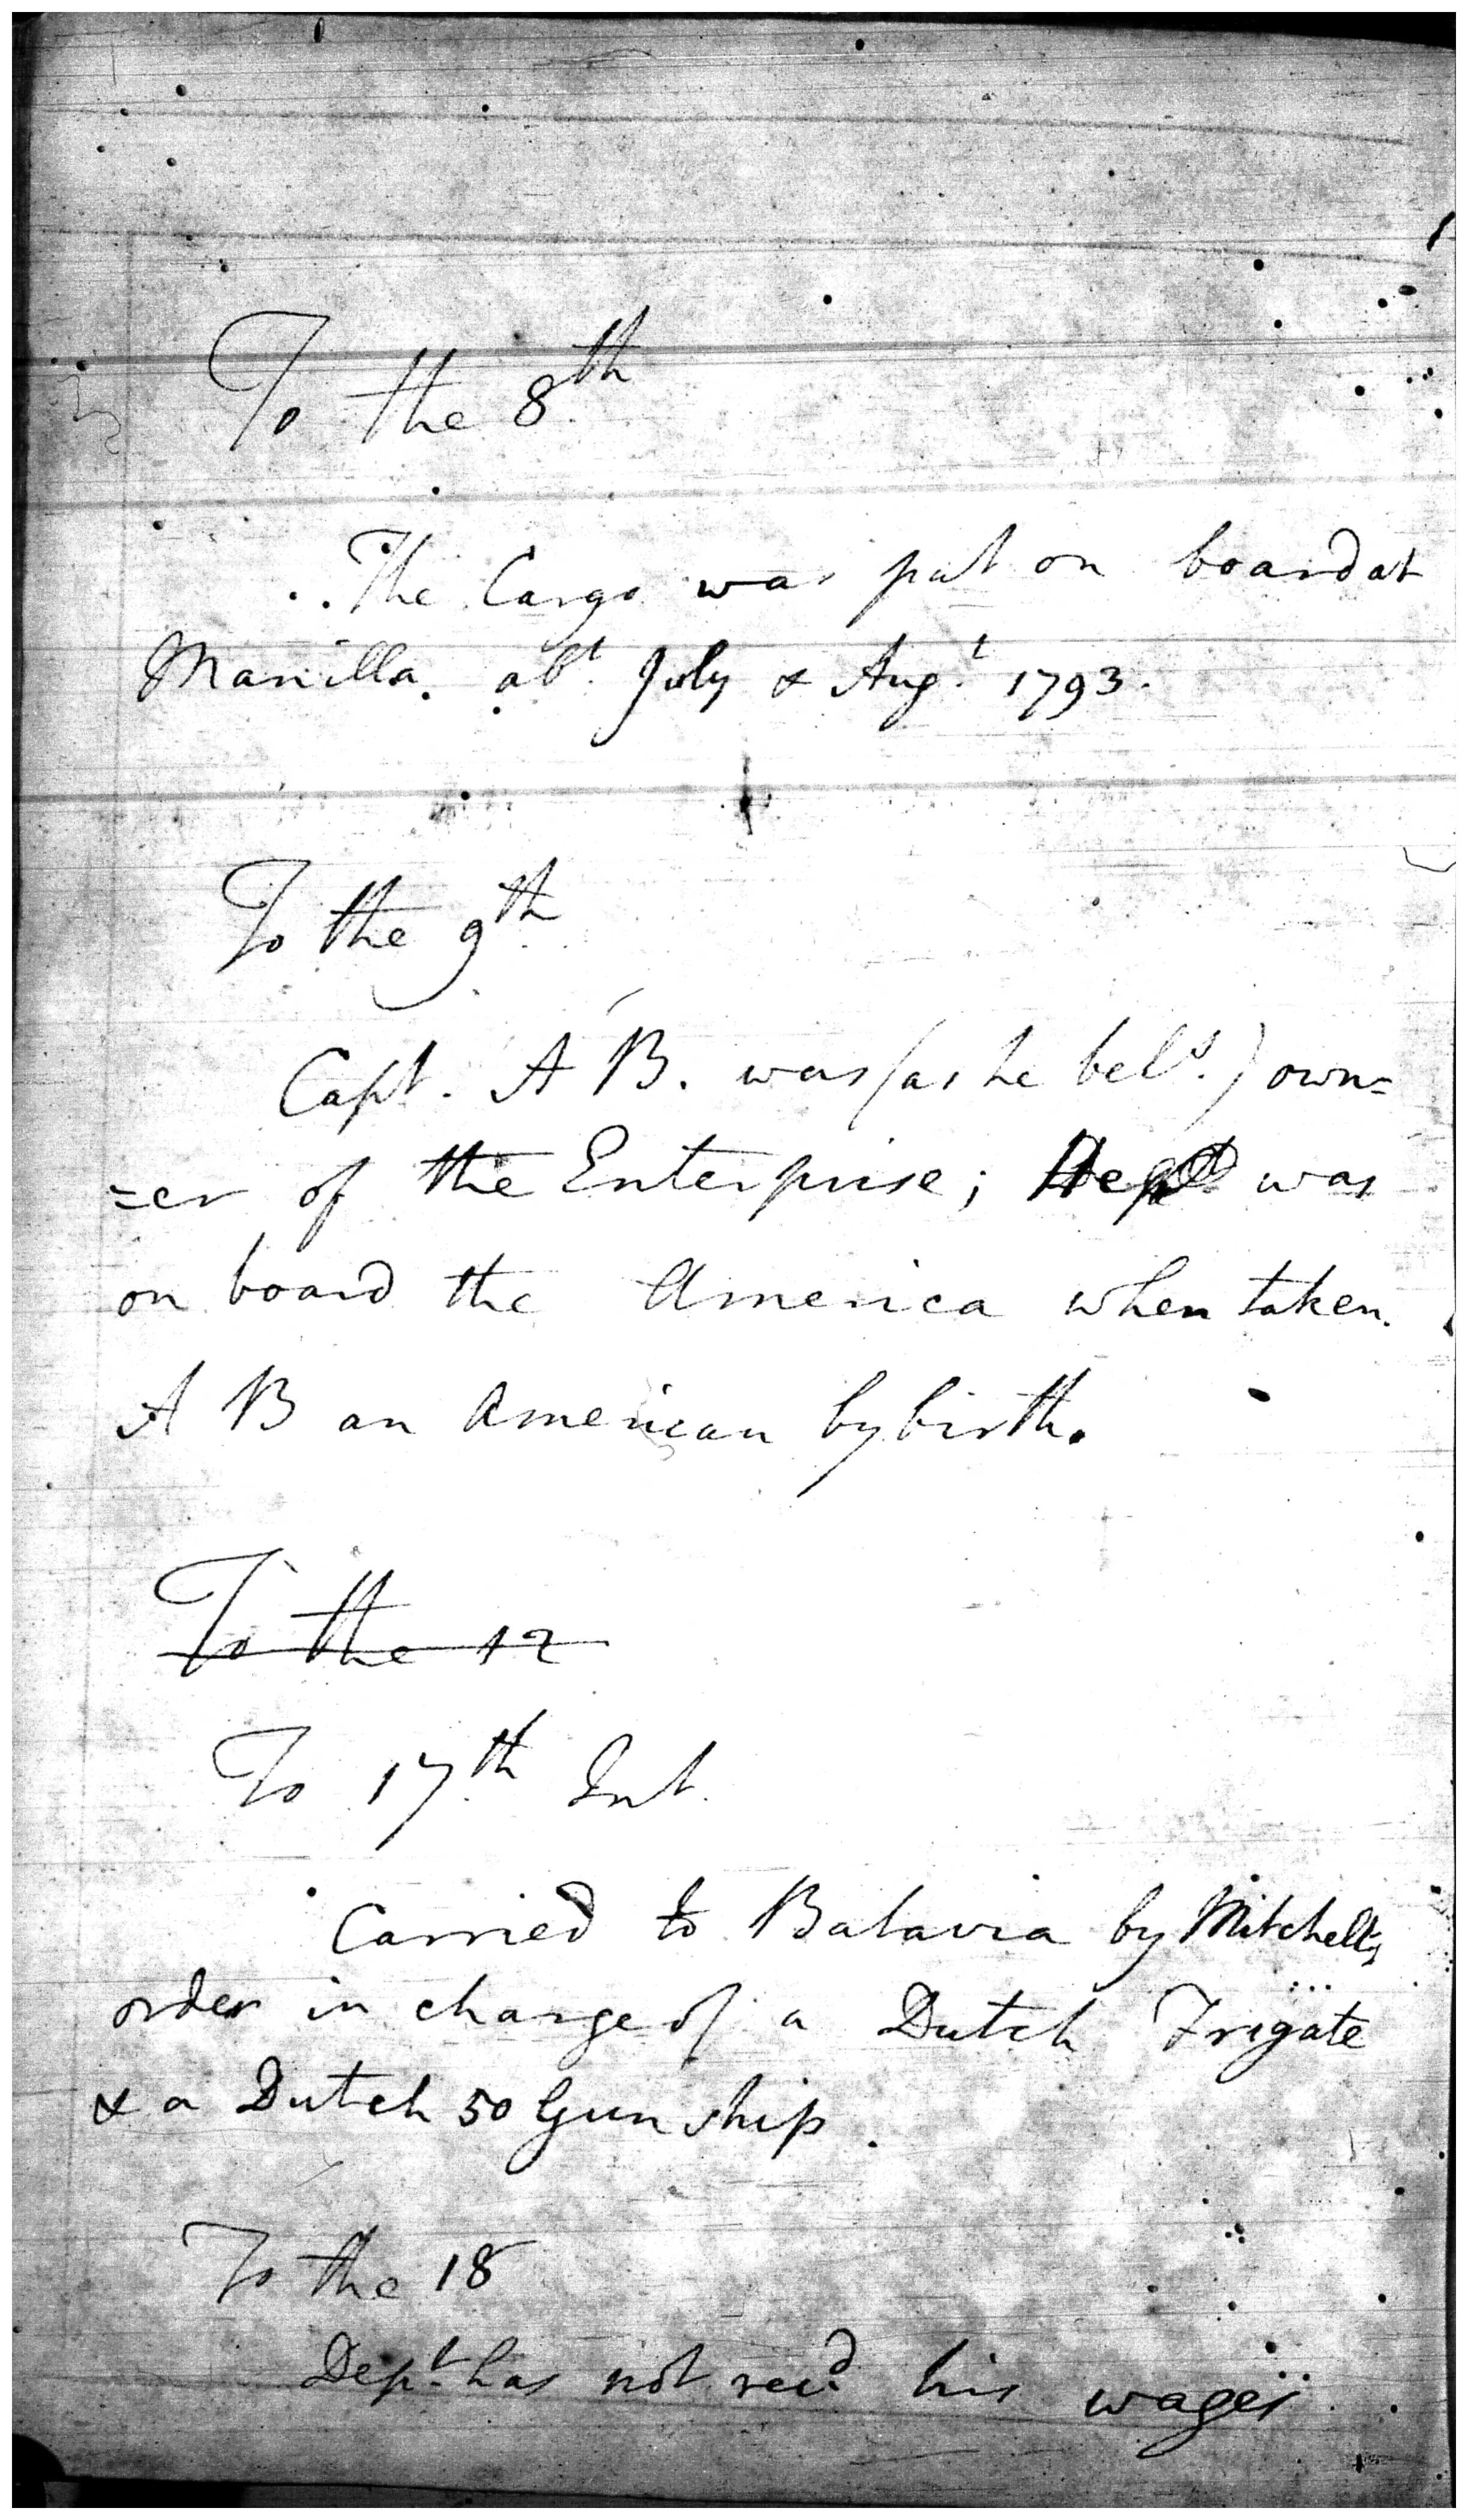 To the 8th
The Cargo was put on board at
Manilla. abt. July & Augt. 1793.
To the 9th
Capt. A B. was (as he bels.) own=
=er of the Enterprise; Dept was
on board the America when taken.
A B an American by birth.
To the 12
To 17th Int.
Carried to Batavia by Mitchell's
order in charge of a Dutch Frigate
& a Dutch 50 Gun ship.
To the 18
Dept. has not recd. his wages